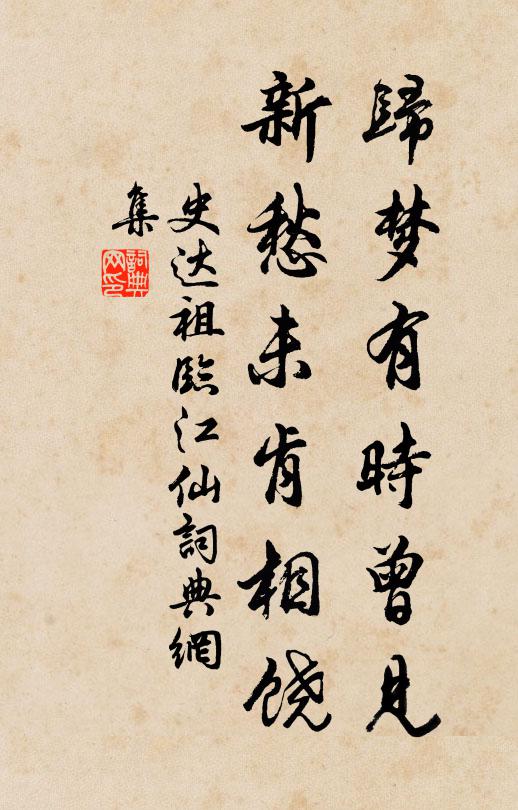 歸梦有時曾見
新愁未肯相饶
史达祖臨江仙詞典網
集
詞典网印